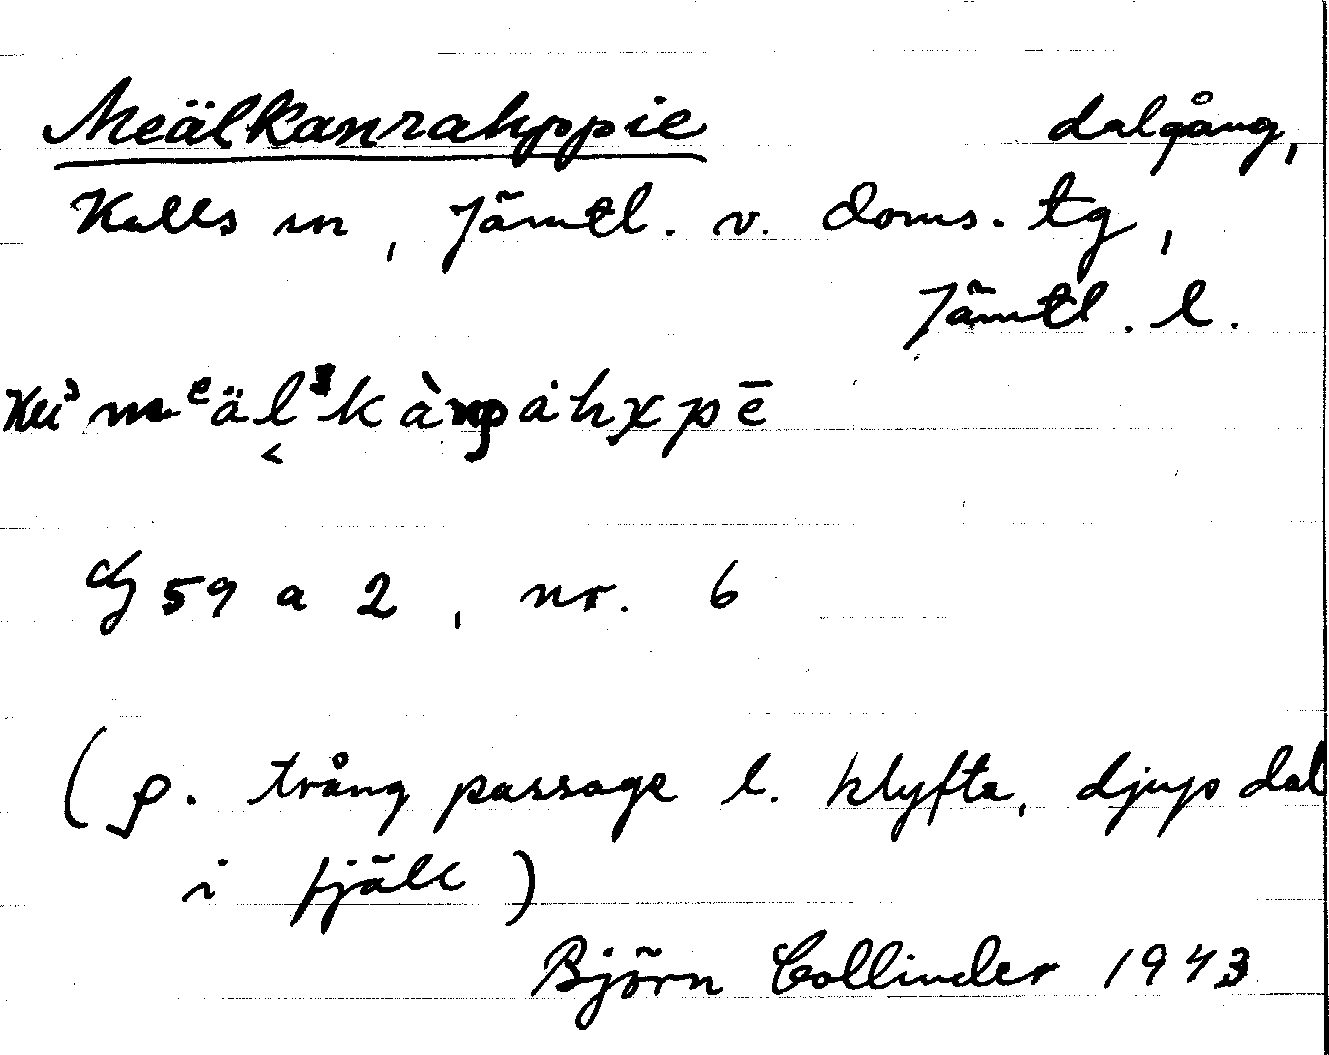 Meälkanrahppie dalgång,
Kalls sn, Jämtl. v. doms. tg,
Jämtl. l.
59 a 2, nr. 6
( trång passage l. klyfta, djup dal
i fjäll)
Björn Collinder 1943